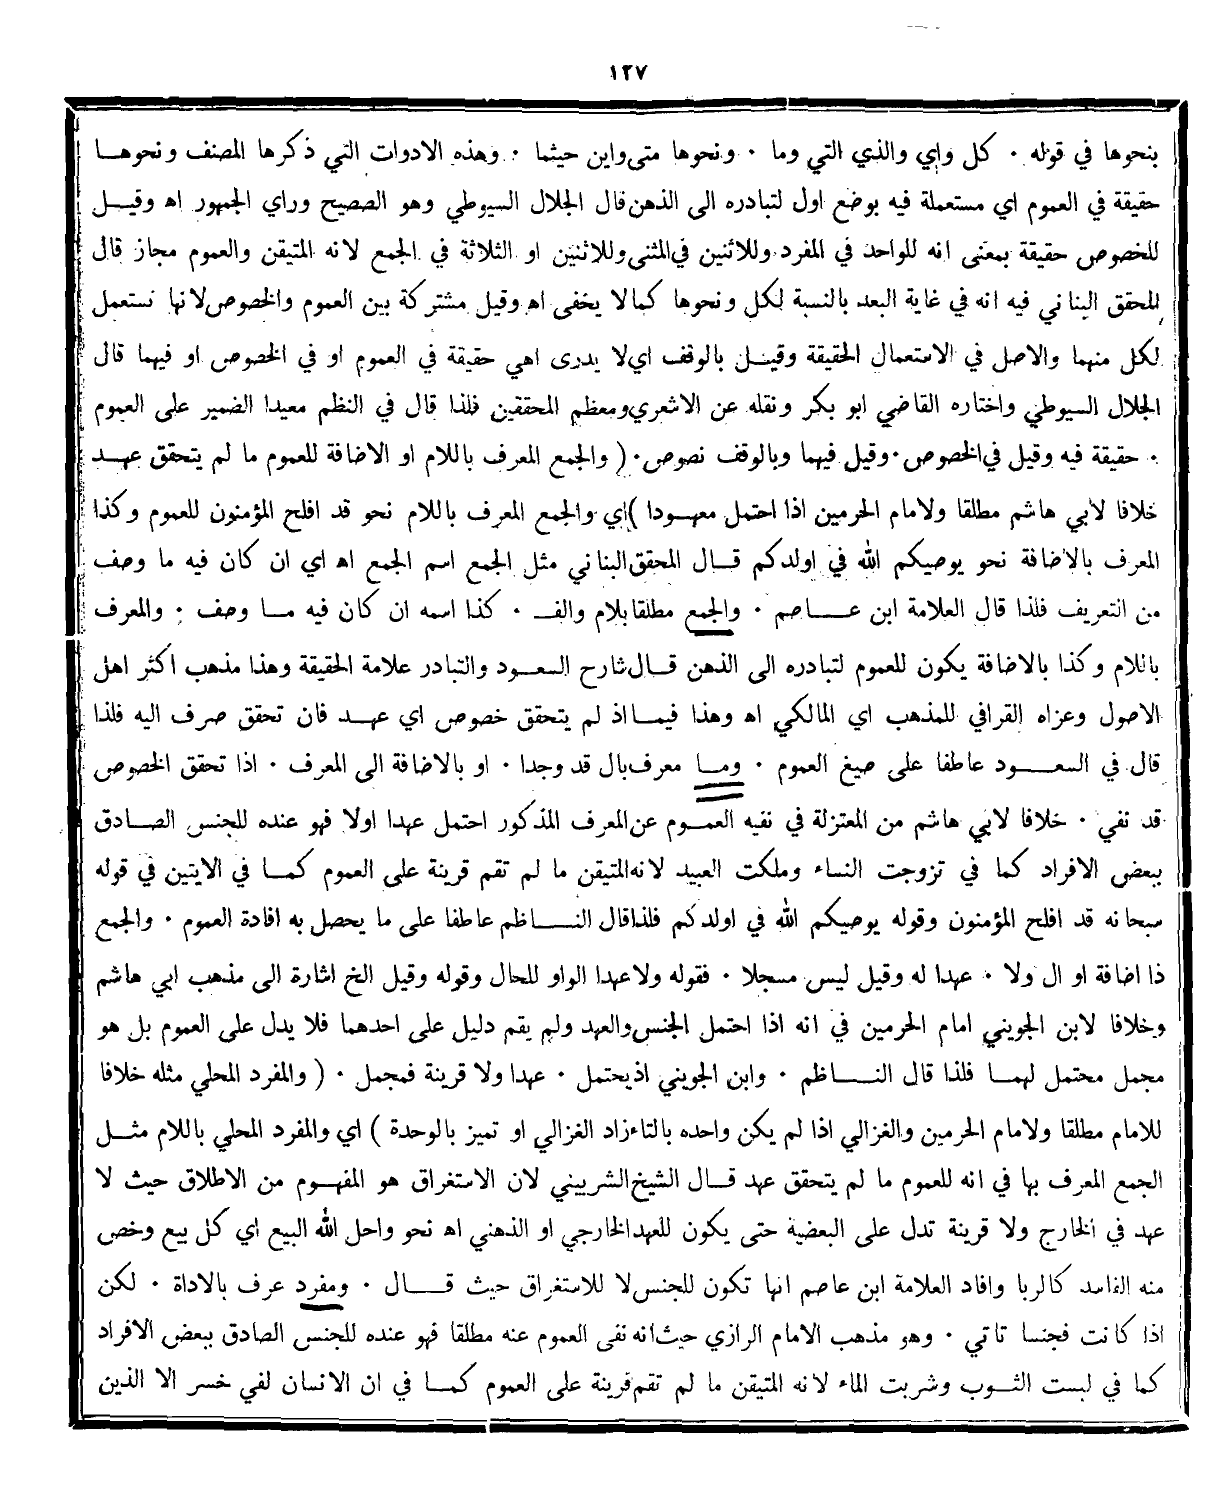 ١٢٧
بنحوها في قوله ٠ كل واي والذي التي وما ٠ ونحوها متى واين حيثما ٠ وهذه الادوات التي ذكرها المصنف ونحوهـــا
حقيقة في العموم اي مستعملة فيه بوضع اول لتبادره الى الذهن قال الجلال السيوطي وهو الصحيح وراي الجمهور اه وقيــل
للخصوص حقيقة بمعنى انه للواحد في المفرد وللاثنين في المثنى وللاثنين او الثلاثة في الجمع لانه المتيقن والعموم مجاز قال
للحقق البناني فيه انه في غاية البعد بالنسبة لكل ونحوها كما لا يخفى اه وقيل مشتركة بين العموم والخصوص لانها تستعمل
لكل منهما والاصل في الاستعمال الحقيقة وقيـــل بالوقف اي لا يدرى اهي حقيقة في العموم او في الخصوص او فيهما قال
الجلال السيوطي واختاره القاضي ابو بكر ونقله عن الاشعري ومعظم المحققين فلذا قال في النظم معيدا الضمير على العموم
٠ حقيقة فيه وقيل في الخصوص ٠ وقيل فيهما وبالوقف نصوص ٠ ( والجمع المعرف باللام او الاضافة للعموم ما لم يتحقق عهــد
خلافا لابي هاشم مطلقا ولامام الحرمين اذا احتمل معهــودا ) اي والجمع المعرف باللام نحو قد افلح المؤمنون للعموم وكذا
المعرف بالاضافة نحو يوصيكم الله في اولدكم قــال المحقق البناني مثل الجمع اسم الجمع اه اي ان كان فيه ما وصف
من التعريف فلذا قال العلامة ابن عـــاصم ٠ والجمع مطلقا بلام والفــ ٠ كذا اسمه ان كان فيه مــا وصف ٠ والمعرف
باللام وكذا بالاضافة يكون للعموم لتبادره الى الذهن قــال شارح السعــود والتبادر علامة الحقيقة وهذا مذهب اكثر اهل
الاصول وعزاه القرافي للمذهب اي المالكي اه وهذا فيمــا اذ لم يتحقق خصوص اي عهــد فان تحقق صرف اليه فلذا
قال في السعـــود عاطفا على صيغ العموم ٠ ومــا معرف بال قد وجدا ٠ او بالاضافة الى المعرف ٠ اذا تحقق الخصوص
قد نفي ٠ خلافا لابي هاشم من المعتزلة في نفيه العمــوم عن المعرف المذكور احتمل عهدا اولا فهو عنده للجنس الصــادق
ببعض الافراد كما في تزوجت النساء وملكت العبيد لانه المتيقن ما لم تقم قرينة على العموم كمــا في الايتين في قوله
سبحانه قد افلح المؤمنون وقوله يوصيكم الله في اولدكم فلذا قال النـــاظم عاطفا على ما يحصل به افادة العموم ٠ والجمع
ذا اضافة او ال ولا ٠ عهدا له وقيل ليس مسجلا ٠ فقوله ولا عهدا الواو للحال وقوله وقيل الخ اشارة الى مذهب ابي هاشم
وخلافا لابن الجويني امام الحرمين في انه اذا احتمل الجنس والعهد ولم يقم دليل على احدهما فلا يدل على العموم بل هو
مجمل محتمل لهمــا فلذا قال النـــاظم ٠ وابن الجويني اذ يحتمل ٠ عهدا ولا قرينة فمجمل ٠ ( والمفرد المحلي مثله خلافا
للامام مطلقا ولامام الحرمين والغزالي اذا لم يكن واحده بالتاء زاد الغزالي او تميز بالوحدة ) اي والمفرد المحلي باللام مثــل
الجمع المعرف بها في انه للعموم ما لم يتحقق عهد قــال الشيخ الشربيني لان الاستغراق هو المفهــوم من الاطلاق حيث لا
عهد في الخارج ولا قرينة تدل على البعضية حتى يكون للعهد الخارجي او الذهني اه نحو واحل الله البيع اي كل بيع وخص
منه الفاسد كالربا وافاد العلامة ابن عاصم انها تكون للجنس لا للاستغراق حيث قـــال ٠ ومفرد عرف بالاداة ٠ لكن
اذا كانت فجنسا تاتي ٠ وهو مذهب الامام الرازي حيث انه نفى العموم عنه مطلقا فهو عنده للجنس الصادق ببعض الافراد
كما في لبست الثــوب وشربت الماء لانه المتيقن ما لم تقم قرينة على العموم كمــا في ان الانسان لفي خسر الا الذين